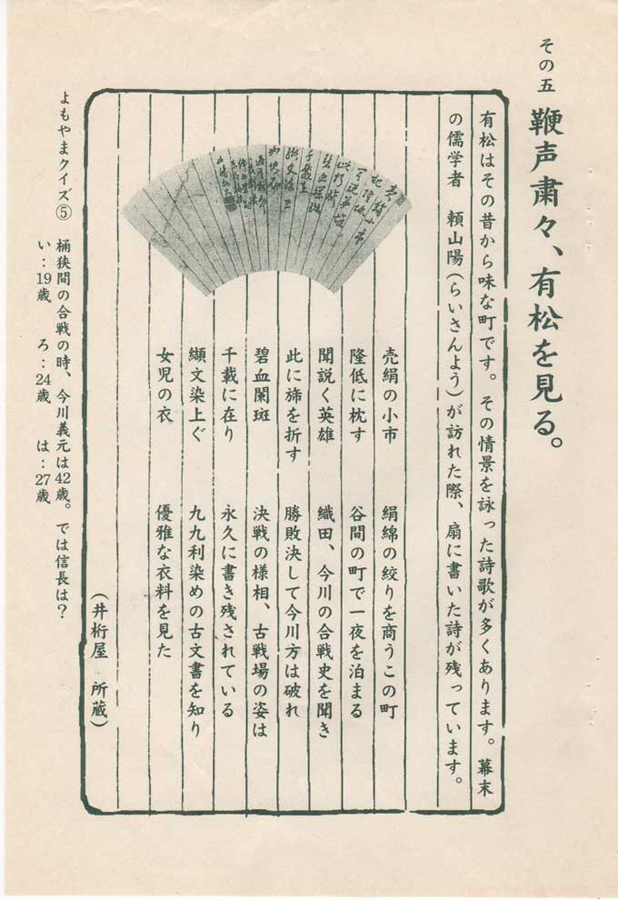 その五 鞭声粛々、有松を見る。
有松はその昔から味な町です。その情景を詠った詩歌が多くあります。幕末
の儒学者 頼山陽（らいさんよう）が訪れた際、扇に書いた詩が残っています。
売絹の小市 絹綿の絞りを商うこの町
隆低に枕す 谷間の町で一夜を泊まる
聞説く英雄 織田、今川の合戦史を聞き
此に斾を折す 勝敗決して今川方は破れ
碧血闌斑 決戦の様相、古戦場の姿は
千載に在り 永久に書き残されている
纈文染上ぐ 九九利染めの古文書を知り
女児の衣 優雅な衣料を見た
（井桁屋 所蔵）
よもやまクイズ⑤ 桶狭間の合戦の時、今川義元は42歳。では信長は？
い：19歳 ろ：24歳 は：27歳